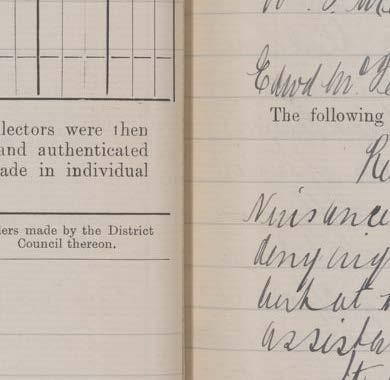 llectors were then
and authenticated
ade in individual
ders made by the District
Council thereon.
Edwd Mc
The following
Nuisance
denying
but at
assista